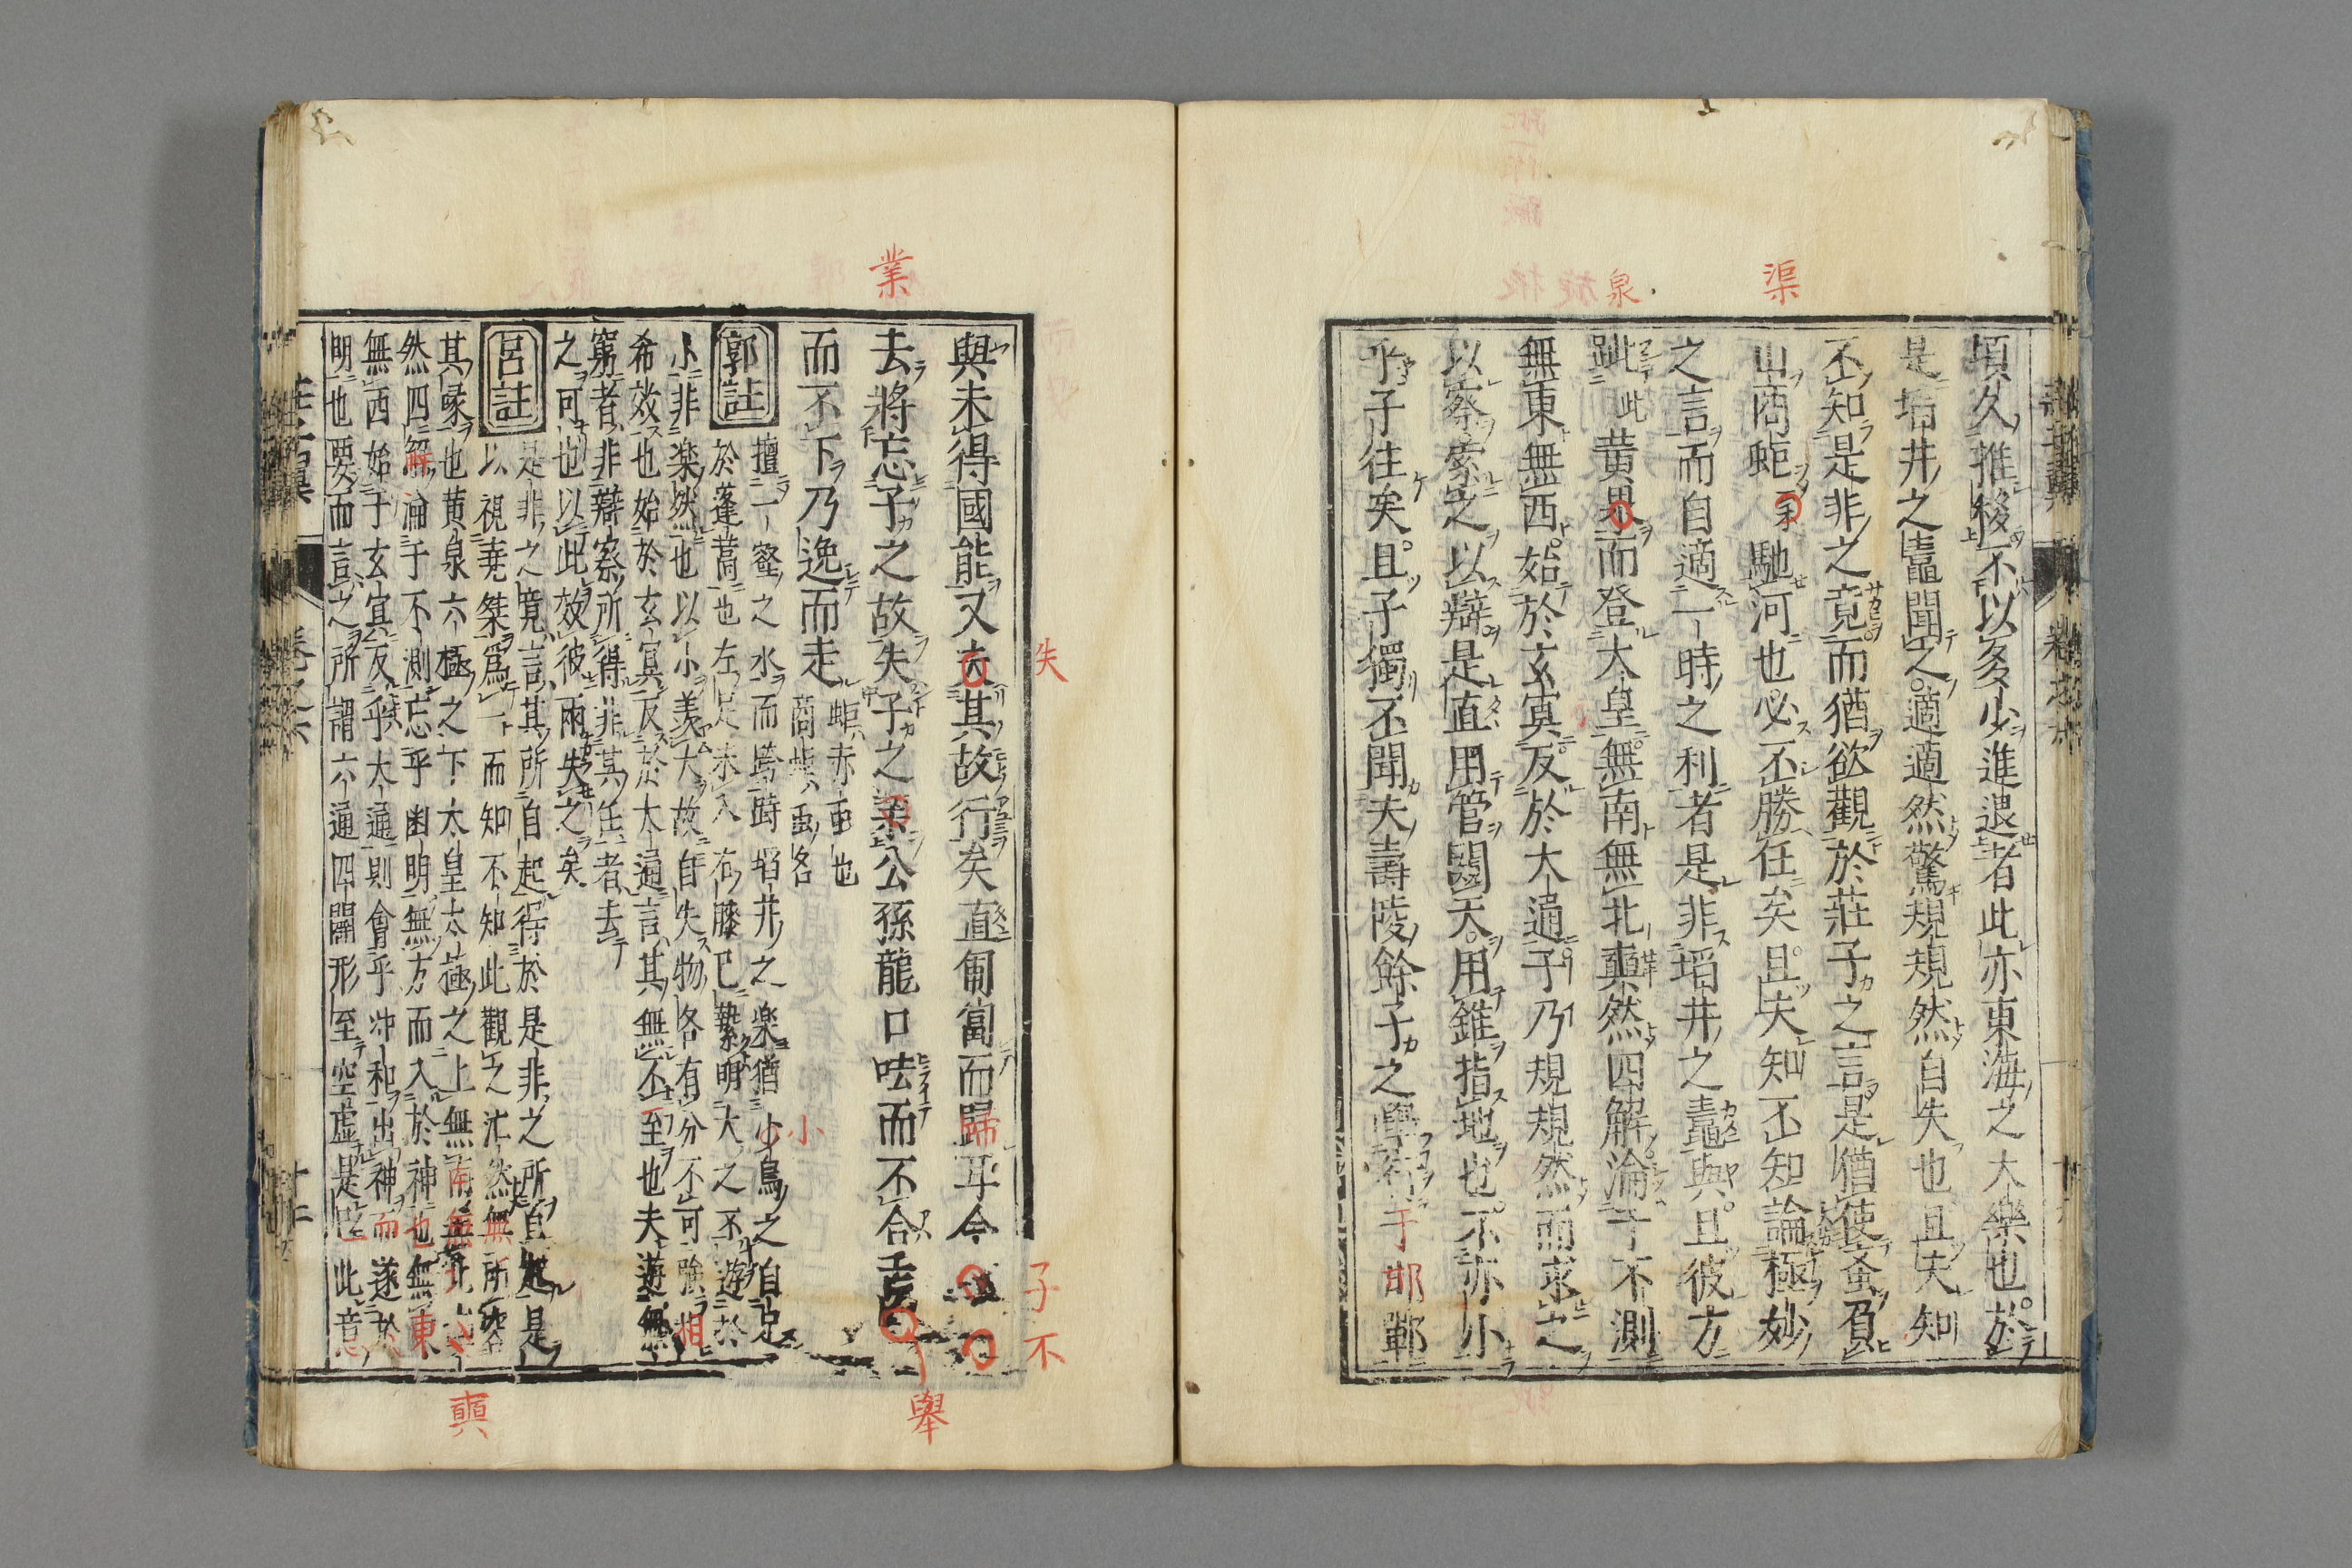 渠
泉
頃久推移不以多少進退者此亦東海之大樂也於
是埳井之鼃聞之適適然驚規規然自失也且夫知
不知是非之竟而猶欲觀於莊子之言是猶使蚉負
山商蚷馳河也必不勝任矣且夫知不知論極妙
之言而自適一時之利者是非埳井之鼃與且彼方
跐此黃而登大皇無南無北奭然四解淪于不測
無東無西始於玄冥反於大通子乃規規然而求之
以察索之以辯是直用管闚天用錐指地也不亦小
乎子往矣且子獨不聞夫壽陵餘子之學行于邯鄲
業
失
子不
與未得國能又失其故行矣直匍匐而歸耳今
去將忘子之故失子之業公孫龍口呿而不合舌
舉
而不下乃逸而走
蚷赤蟲也
商蚷蟲名
郭註
擅一壑之水而跨跱埳井之樂猶小鳥之自足
小
於蓬蒿也左足未入右膝已縶明大之不遊於
小非樂然也以小羨大故自失物各有分不可強相
希效也始於玄冥反於大通言其無不至也夫遊無
窮者非辯察所得非其任者去
之可也以此效彼兩失之矣
呂註
是非之竟言其所自起得於是非之所自起是
以視堯桀爲一而知不知此觀之汒然無所
其喙也黃泉六極之下大皇太極之上無南無北
奭
然四解淪于不測忘乎幽明無方而入於神也無東
無西始于玄冥反乎大通則會乎冲和出神而遂於
明也要而言之所謂六通四闢形至空虛是 此意
卷之六